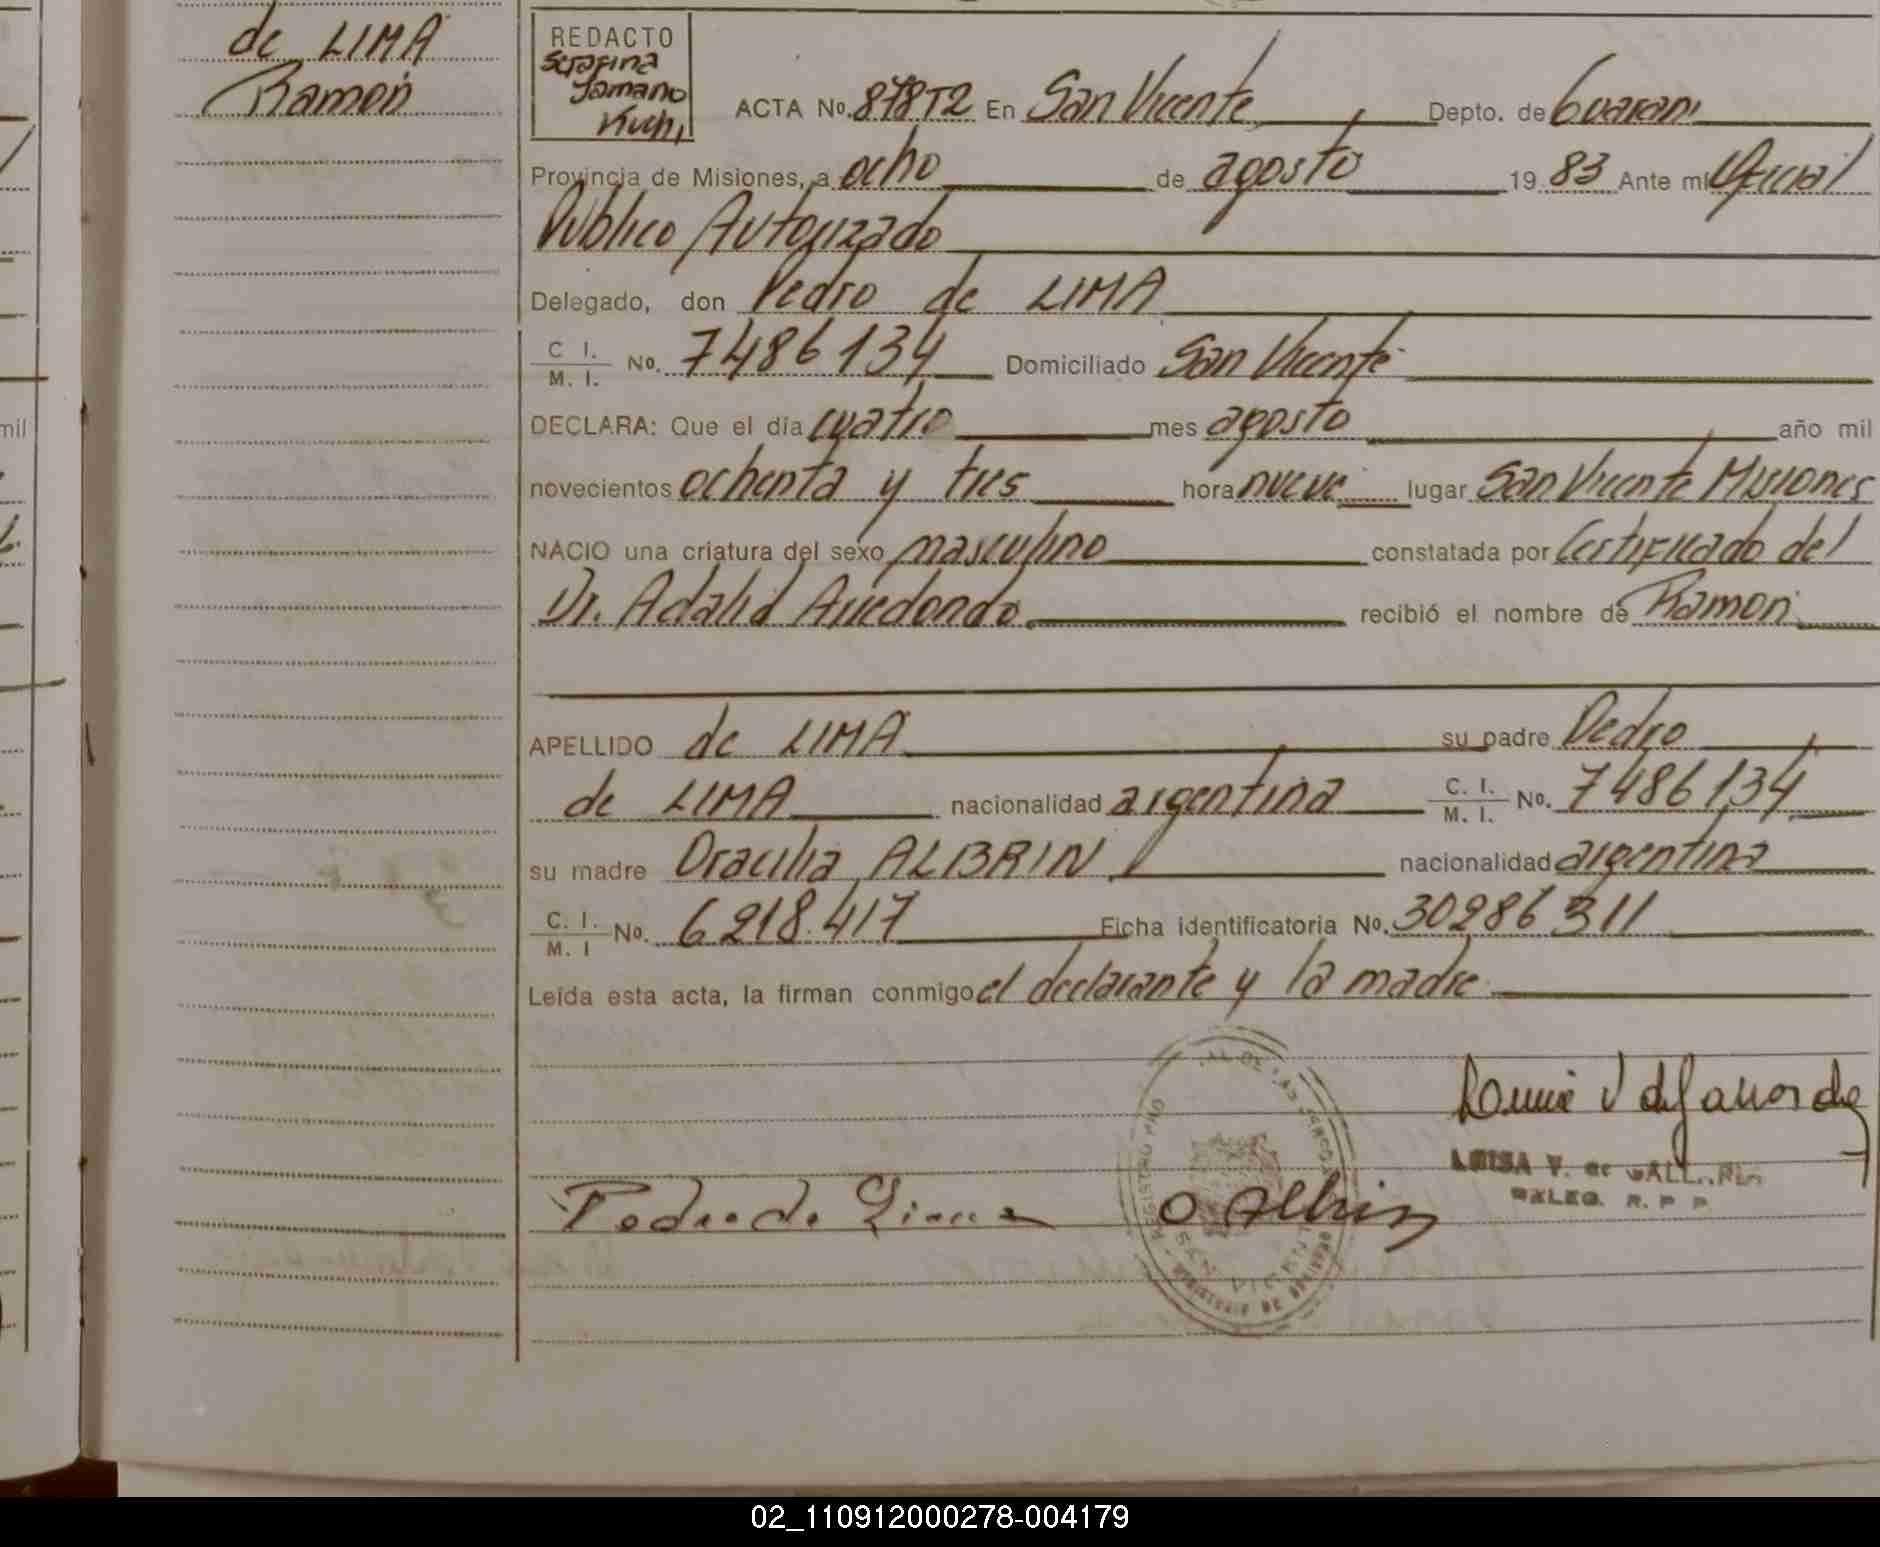 de LIMA
Ramón
REDACTO
Serafina
Jamano
Kuchi
ACTA No. 878T2 En San Vicente Depto. de Guarani
Provincia de Misiones, a ocho de agosto 19 83 Ante mi Oficial
Público Autorizado
Delegado, don Pedro de LIMA
C I. / M. I. No. 7486134 Domiciliado San Vicente
DECLARA: Que el día cuatro mes agosto año mil
novecientos ochenta y tres hora nueve lugar San Vicente Misiones
NACIO una criatura del sexo masculino constatada por Certificado del
Dr. Adalid Arredondo recibió el nombre de Ramón
APELLIDO de LIMA su padre Pedro
de LIMA nacionalidad argentina C. I. / M. I. No. 7486134
su madre Oracilia ALBRIN nacionalidad argentina
C. I. / M. I No. 6218.417 Ficha identificatoria No. 30286311
Leída esta acta, la firman conmigo el declarante y la madre
LUISA V. de
DELEG. R. P. P.
Pedro de Lima
O Albrin
02_110912000278-004179